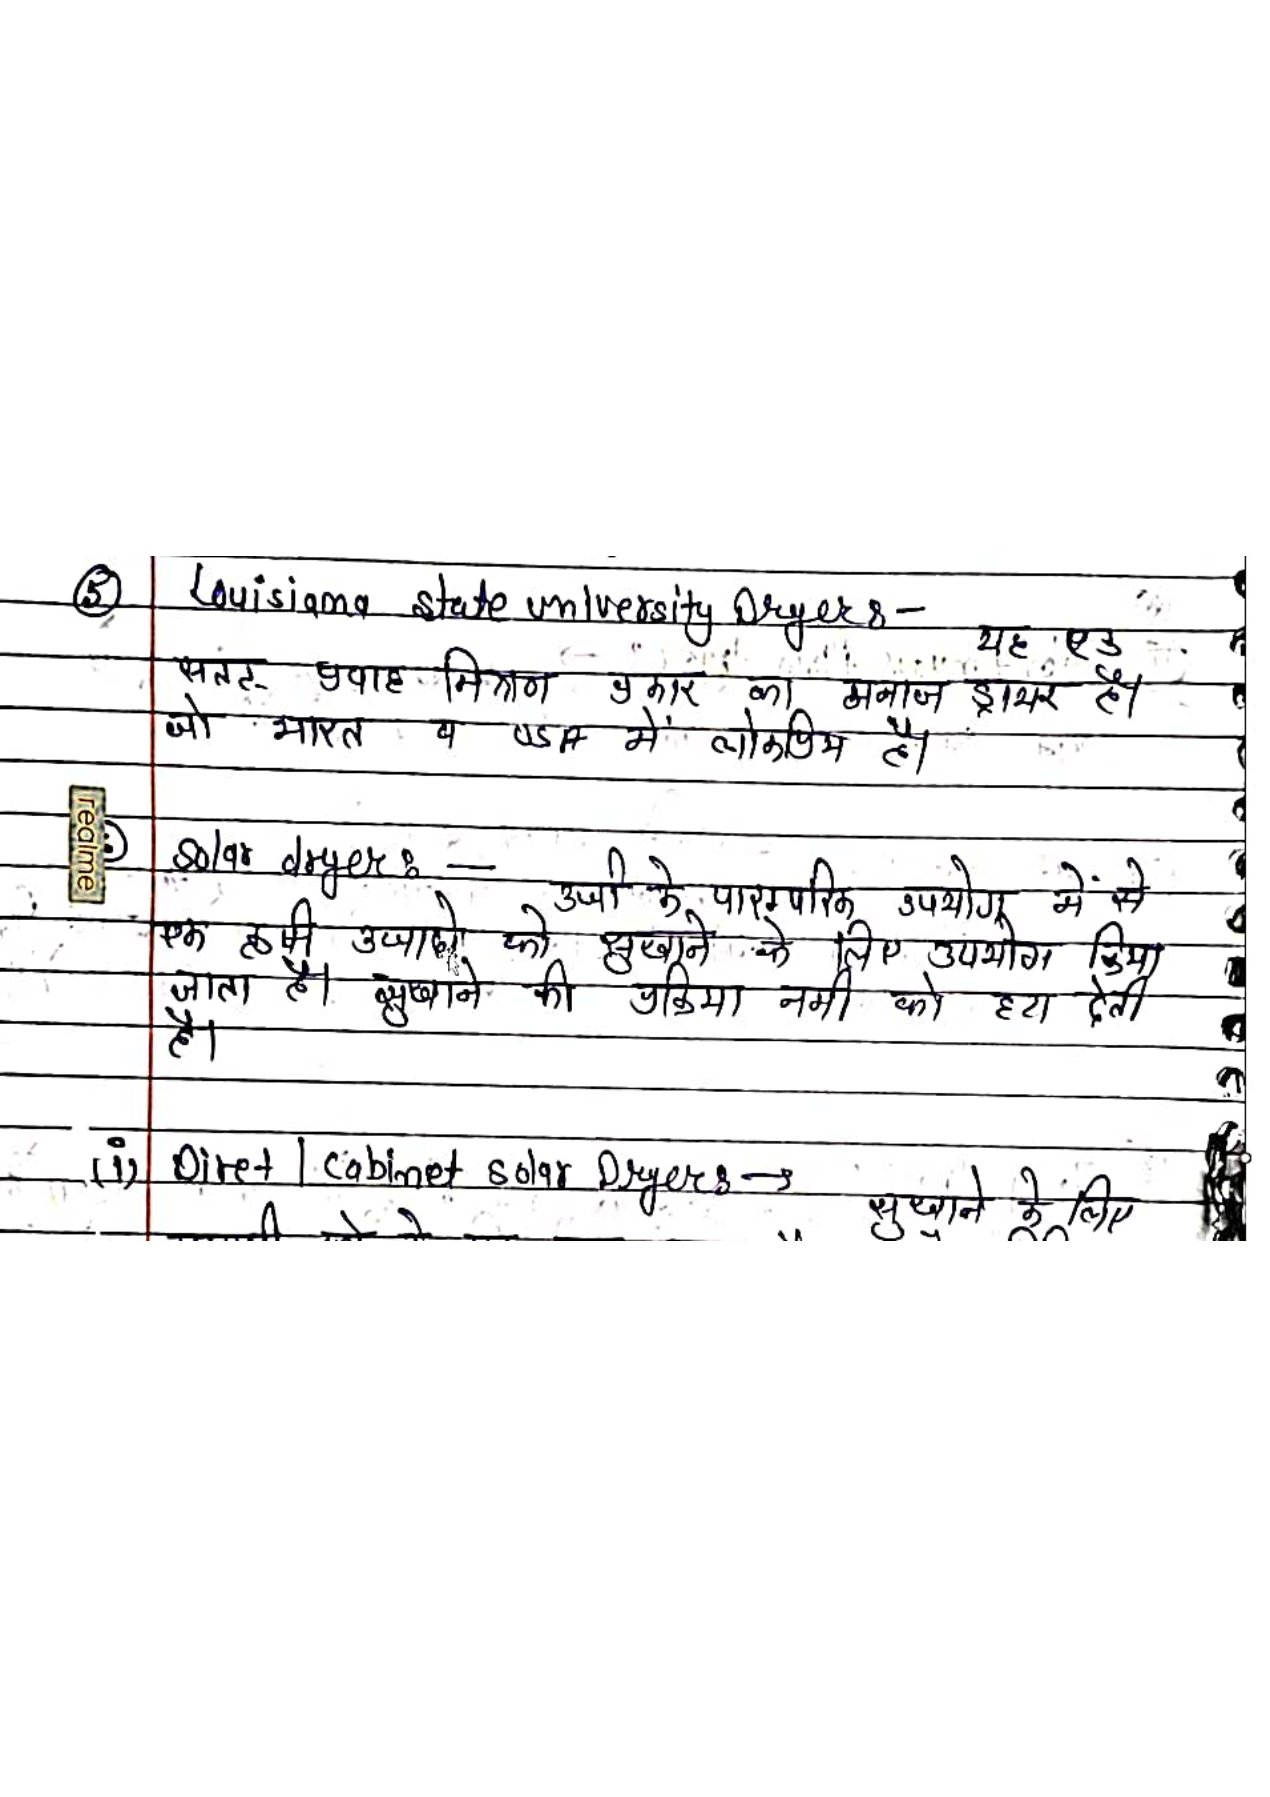 5 Louisiana state university Dryers –
यह एक
सतत प्रवाह मिश्रण प्रकार का अनाज ड्रायर है।
जो भारत व USA में लोकप्रिय है।
realme
Solar dryers —
उर्जा के पारम्परिक उपयोग में से
एक कृषी उत्पादो को सुखाने के लिए उपयोग किया
जाता है। सुखाने की प्रक्रिया नमी को हटा देती
है।
(i) Diret | Cabinet solar Dryers →
सुखाने के लिए